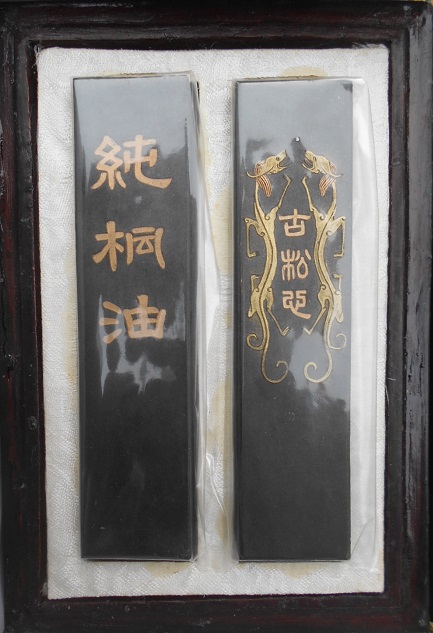 純桐油
古松